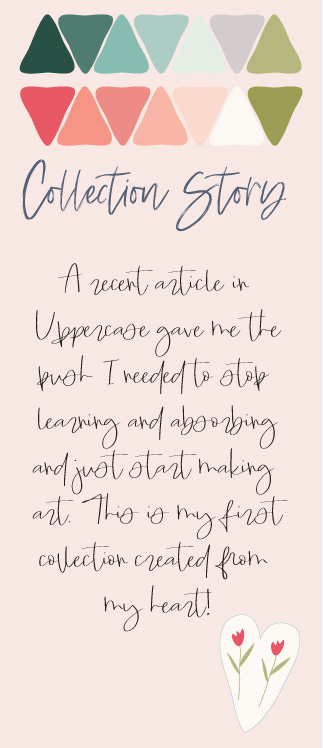 Collection Story
A recent article in
Uppercase gave me the
push I needed to stop
learning and absorbing
and just start making
art. This is my first
collection created from
my heart!